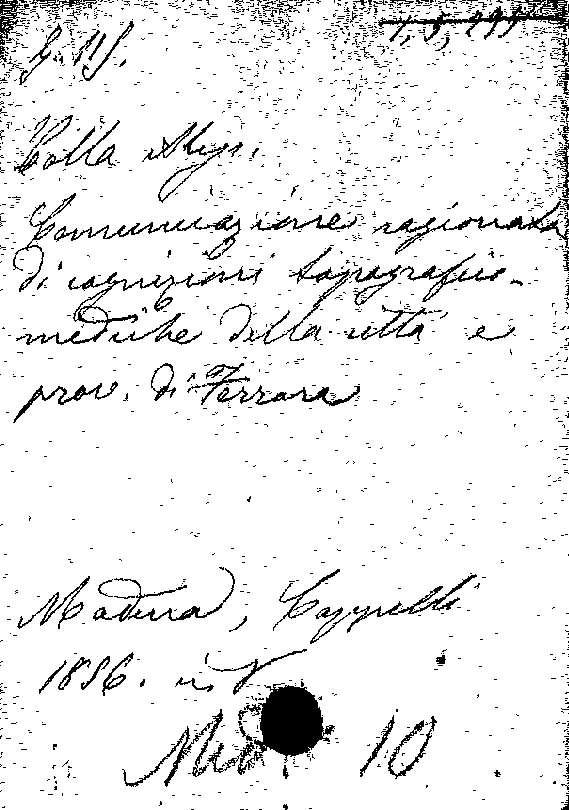 1, 5, 295
Colla Aloys.
Comunicazione ragionata
di cognizioni topografico-
mediche della città e
prov. di Ferrara
Modena, Cappelli
1856. in 8
Med. 10